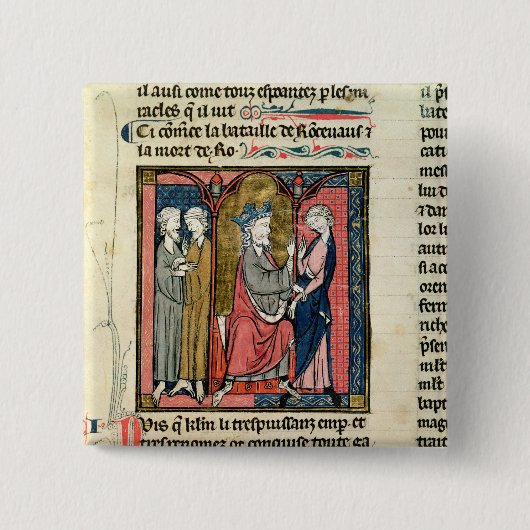 il ausi come touz espoantez p les mi
racles q il uit
Ci comẽce la bataille de Rõceuaus ⁊
la mort de Ro.
Puis q kłm li trespuissanz emp. et
tresrenomez ot conquise toute ga
il pñ
bate
pour
cati
mes
lui d
⁊ dan
loz lu
autr
si aco
oren
ferm
riche
pſen
milt
milt
bapt
mag
trait